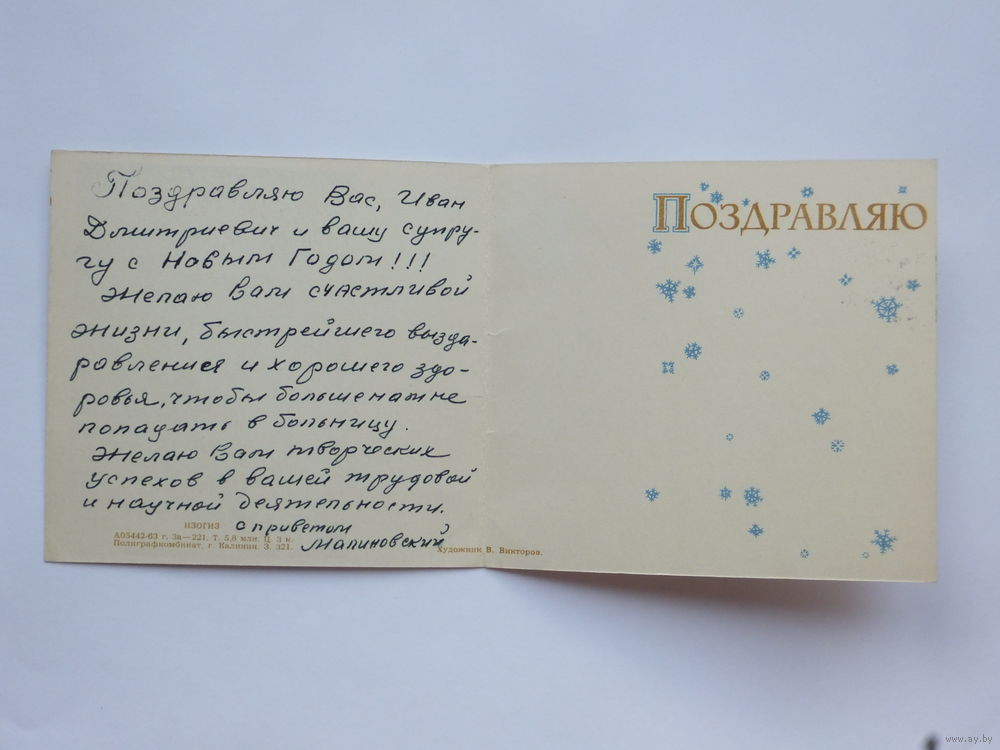 Поздравляю Вас, Иван
Дмитриевич и вашу супру-
гу с Новым Годом!!!
Желаю Вам счастливой
жизни, быстрейшего выздо-
равления и хорошего здо-
ровья, чтобы больше нам не
попадать в больницу.
Желаю Вам творческих
успехов в вашей трудовой
и научной деятельности.
с приветом
Малиновский
ИЗОГИЗ
А05442-63 г. За—221. Т. 5,8 млн. Ц. 3 к.
Полиграфкомбинат, г. Калинин. З. 321.
Художник В. Викторов.
ПОЗДРАВЛЯЮ
www.ay.by